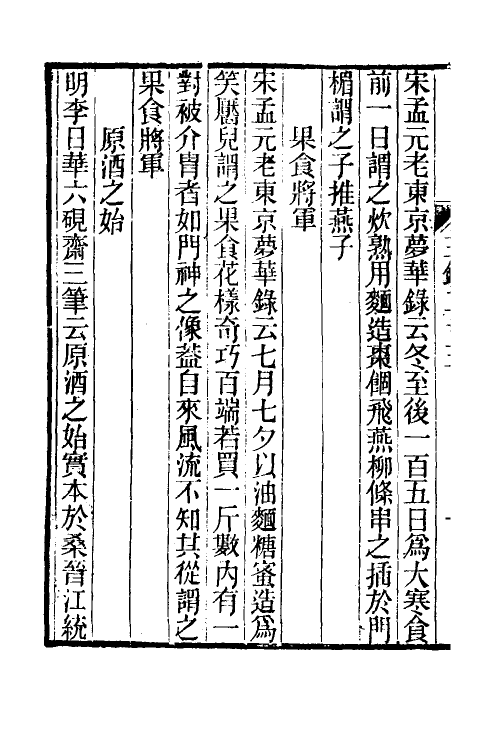 宋孟元老東京夢華錄云冬至後一百五日爲大寒食
前一日謂之炊熟用麵造棗䭅飛燕柳條串之插於門
楣謂之子推燕子
果食將軍
宋孟元老東京夢華錄云七月七夕以油麵糖蜜造爲
笑靨兒謂之果食花樣奇巧百端若買一斤數內有一
對被介冑者如門神之像葢自來風流不知其從謂之
果食將軍
原酒之始
明李日華六硯齋三筆云原酒之始實本於桑晉江統